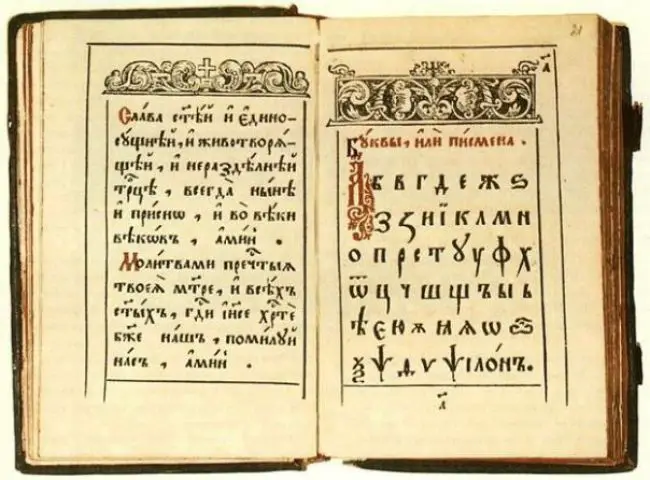 Сла́ва ст҃ѣ́й и҆ є҆дино-
сꙋ́щнѣй, и҆ животворѧ́-
щей, и҆ нераздѣ́лнѣй
трⷪ҇цѣ, всегда̀ нн҃ѣ
и҆ при́снѡ, и҆ во вѣ́ки
вѣкѡ́въ, а҆ми́нь.
Моли́твами пречⷭ҇тыѧ
твоеѧ̀ мт҃ре, и҆ всѣ́хъ
ст҃ы́хъ, гдⷭ҇и і҆и҃се хрⷭ҇тѐ
бж҃е на́шъ, поми́лꙋй
на́съ, а҆ми́нь.
21
а҃
Бꙋ́квы, и҆лѝ письмена̀.
А Б В Г Д Е Ж Ѕ
З Ꙁ И Ї К Л М Н
О П Р С Т Ꙋ У Ф Х
Ѿ Ц Ч Ш Щ Ъ Ы Ь
Ѣ Є Ю Ѫ И Ѧ Ѡ
Ѯ Ѱ Ѵ ѱїло́нъ.